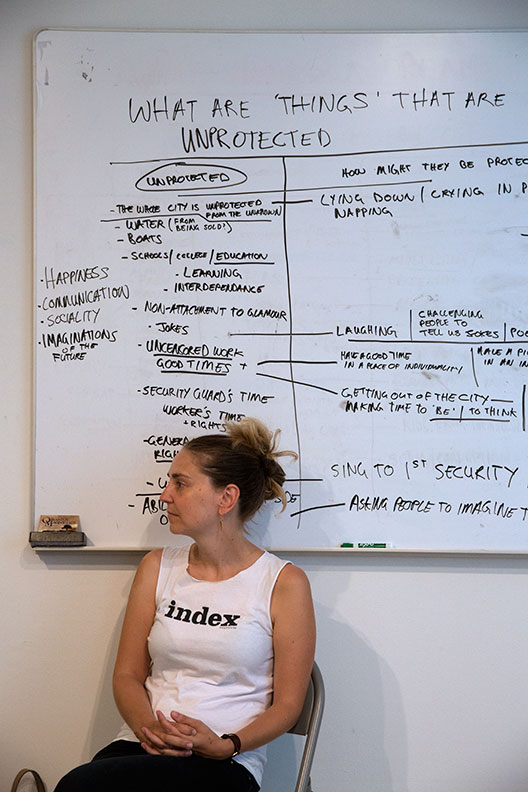 WHAT ARE 'THINGS' THAT ARE
UNPROTECTED
UNPROTECTED
- THE WHOLE CITY IS UNPROTECTED
FROM THE UNKNOWN
- WATER (FROM
BEING SOLD?)
- BOATS
- SCHOOLS / COLLEGE / EDUCATION
- LEARNING
- INTERDEPENDANCE
- NON-ATTACHMENT TO GLAMOUR
- JOKES
- UNCENSORED WORK
GOOD TIMES +
- SECURITY GUARD'S TIME
WORKER'S TIME
+ RIGHTS
- HAPPINESS
- COMMUNICATION
- SOCIALITY
- IMAGINATIONS
OF THE
FUTURE
HOW MIGHT THEY BE
LYING DOWN / CRYING IN
NAPPING
LAUGHING
CHALLENGING
PEOPLE TO
TELL US JOKES
HAVE A GOOD TIME
IN A PLACE OF INDIVIDUALITY
MAKE A
IN AN
GETTING OUT OF THE CITY -
MAKING TIME TO 'BE' / TO THINK
SING TO 1ST SECURITY
- ASKING PEOPLE TO IMAGINE
index